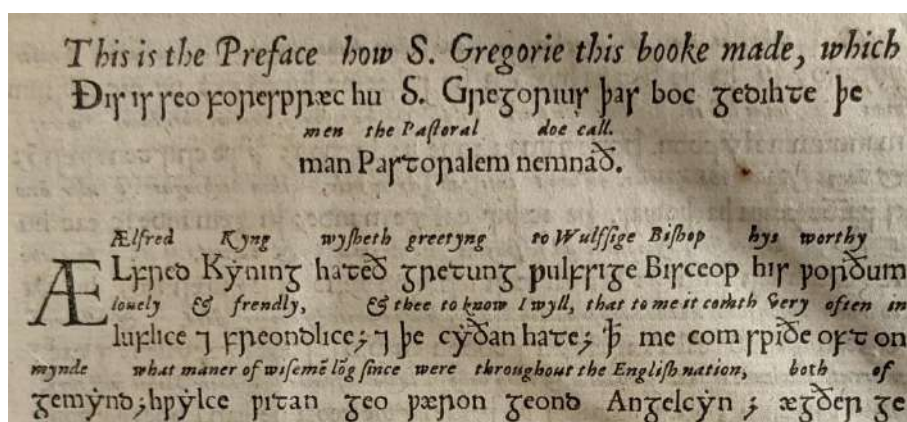 This is the Preface how S. Gregorie this booke made, which
Ðis is seo forespræc hu S. Gregorius þas boc gedihte þe
men the Pastoral doe call.
man Pastoralem nemnað.
Ælfred Kyng wysheth greetyng to Wulfsige Bishop hys worthy
ÆLfred Kẏning hateð gretung Wulfsige Bisceop his worðum
louely & frendly, & thee to know I wyll, that to me it comth very often in
luflice ⁊ freondlice; ⁊ þe cẏðan hate; ꝥ me com swiðe oft on
mynde what maner of wisemē lōg since were throughout the English nation, both of
gemẏnd; hwẏlce witan geo wæron geond Angelcẏn; ægðer ge